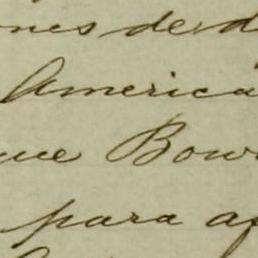 ones de d
America
que Bow
para a